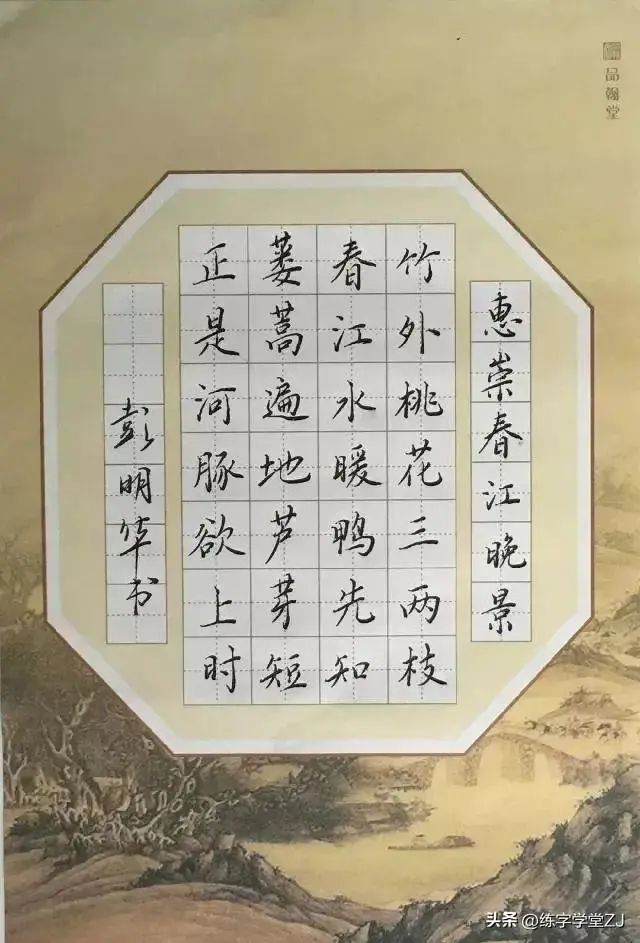 品翰堂
惠崇春江晚景
竹外桃花三两枝
春江水暖鸭先知
蒌蒿遍地芦芽短
正是河豚欲上时
彭明华书
头条 @练字学堂ZJ